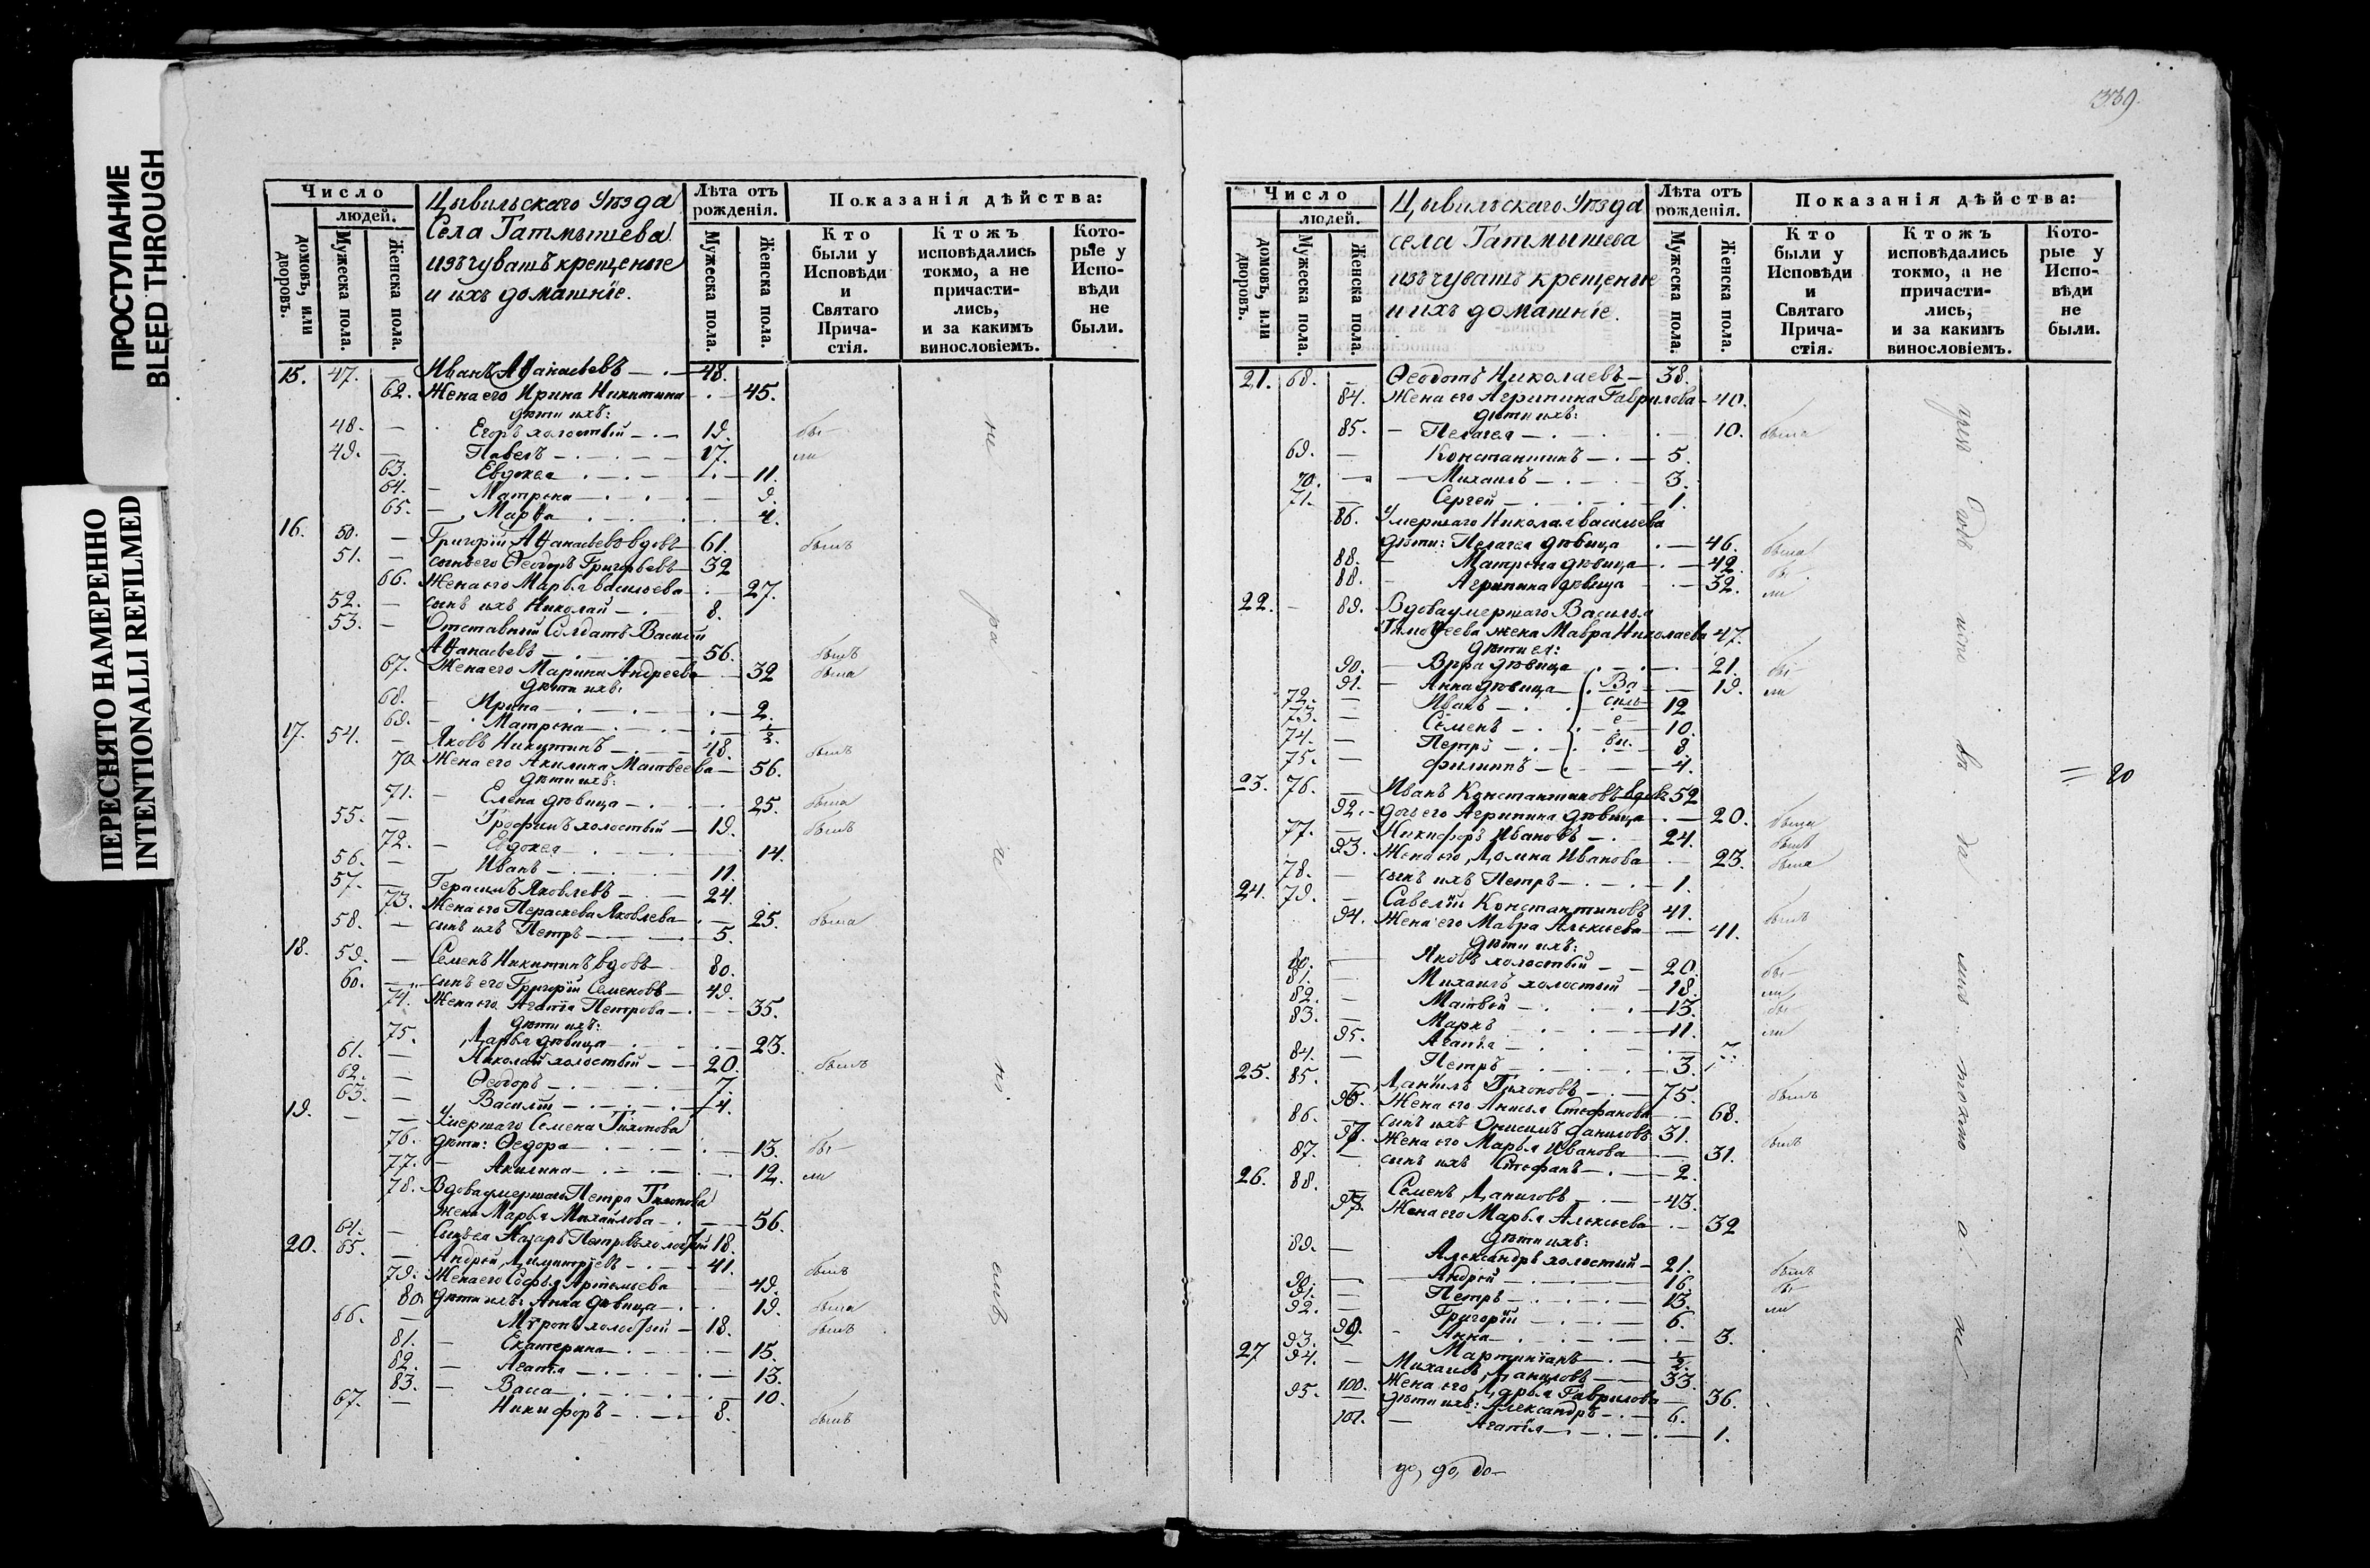 ПРОСТУПАНИЕ
BLEED THROUGH
ПЕРЕСНЯТО НАМЕРЕННО
INTENTIONALLI REFILMED
Число
людей.
домовъ, или дворовъ.
Мужеска пола.
Женска пола.
Цывильскаго Уѣзда
Села Татмышева
изъ чувашъ крещеные
и ихъ домашніе.
Лѣта отъ рожденія.
Мужеска пола.
Женска пола.
Показанія дѣйства:
Кто были у Исповѣди и Святаго Прича-стія.
Ктожъ исповѣдались токмо, а не причасти-лись, и за какимъ винословіемъ.
Кото-рые у Испо-вѣди не были.
15. 47. — Иванъ Аѳанасьевъ — 48.
62. Жена его Ирина Никитина — 45.
дѣти ихъ:
48. — Егоръ холостый — 19. бы-
49. — Павелъ — 17. ли
63. Евдокея — 11.
64. — Матрена — 9.
65. — Марѳа — 4.
16. 50. — Григорій Аѳанасьевъ вдовъ — 61. былъ
51. — сынъ его Ѳеодоръ Григорьевъ — 32
66. Жена его Марья Васильева — 27.
52. — сынъ ихъ Николай — 8.
53. — Отставный Солдатъ Василій
Аѳанасьевъ — 56. былъ
67. Жена его Марина Андреева — 32 была
дѣти ихъ:
68. — Ирина — 2.
69. — Матрена — 1/2.
17. 54. — Яковъ Никитинъ — 48. былъ
70. Жена его Акилина Матвеева — 56.
дѣти ихъ:
71. — Елена дѣвица — 25. была
55. — Трофимъ холостый — 19. былъ
72. — Евдокея — 14.
56. — Иванъ — 11.
57. — Герасимъ Яковлевъ — 24.
73. Жена его Пераскева Яковлева — 25. была
58. — сынъ ихъ Петръ — 5.
18. 59. — Семенъ Никитинъ вдовъ — 80.
60. — сынъ его Григорій Семеновъ — 49.
74. Жена его Агапія Петрова — 35.
дѣти ихъ:
75. Дарья дѣвица — 23.
61. — Николай холостый — 20. былъ
62. — Ѳеодоръ — 7.
63. — Василій — 4.
19. — — Умершаго Семена Тихонова
76. дѣти: Ѳедора — 13. бы-
77. — Акилина — 12. ли
78. Вдова умершаго Петра Тихонова
жена Марья Михайлова — 56.
64. — Сынъ ея Назаръ Петровъ холостый 18.
20. 65. — Андрей Димитріевъ — 41. былъ
79. Жена его Софья Артемьева — 49.
80. дѣти ихъ: Анна дѣвица — 19. была
66. — Миронъ холостый — 18. былъ
81. — Екатерина — 15.
82. — Агапія — 13.
83. — Васса — 10.
67. — Никифоръ — 8. былъ
Число
людей.
домовъ, или дворовъ.
Мужеска пола.
Женска пола.
Цывильскаго Уѣзда
села Татмышева
изъ чувашъ крещеные
и ихъ домашніе.
Лѣта отъ рожденія.
Мужеска пола.
Женска пола.
Показанія дѣйства:
Кто были у Исповѣди и Святаго Прича-стія.
Ктожъ исповѣдались токмо, а не причасти-лись, и за какимъ винословіемъ.
Кото-рые у Испо-вѣди не были.
21. 68. — Ѳеодотъ Николаевъ — 38.
84. Жена его Агрипина Гаврилова — 40.
дѣти ихъ:
85. — Пелагея — 10. была
69. — Константинъ — 5.
70. — Михаилъ — 3.
71. — Сергей — 1.
86. Умершаго Николая Васильева
дѣти: Пелагея дѣвица — 46. была
88. — Матрена дѣвица — 42. бы-
88. — Агрипина дѣвица — 32. ли
22. — 89. Вдова умершаго Василья
Тимоѳеева жена Мавра Николаева 47.
дѣти ея:
90. — Вѣра дѣвица — 21. бы-
91. — Анна дѣвица — Ва — 19. ли
72. — Иванъ — силь — 12
73. — Семенъ — е — 10.
74. — Петръ — вы. — 8
75. — Филиппъ — 4.
23. 76. — Иванъ Константиновъ вдовъ 52
92. дочь его Агрипина дѣвица — 20. была
77. — Никифоръ Ивановъ — 24. былъ
93. Жена его Домна Иванова — 23. была
78. — сынъ ихъ Петръ — 1.
24. 79. — Савелій Константиновъ 41. былъ
94. Жена его Мавра Алексѣева — 41.
дѣти ихъ:
80. — Яковъ холостый — 20. бы-
81. — Михаилъ холостый — 18. ли
82. — Матвей — 13. бы-
83. — Маркъ — 11. ли
95. Агапія — 7.
84. — Петръ — 3.
25. 85. — Даніилъ Тихоновъ — 75. былъ
96. Жена его Анисья Стефанова — 68.
86. — сынъ ихъ Онисимъ Даниловъ 31. былъ
97. Жена его Марья Иванова — 31.
87. — сынъ ихъ Стефанъ — 2.
26. 88. — Семенъ Даниловъ — 43.
Жена его Марья Алексѣева — 32
дѣти ихъ:
89. — Александръ холостый — 21. былъ
90. — Андрей — 16. бы-
91. — Петръ — 13. ли
92. — Григорій — 6.
99. — Анна — 3.
93. — Мартиніанъ — 1/2.
27 94. — Михаилъ Даниловъ — 33.
100. Жена его Дарья Гаврилова — 36.
95. — дѣти ихъ: Александръ — 6.
101. — Агапія — 1.
= 20